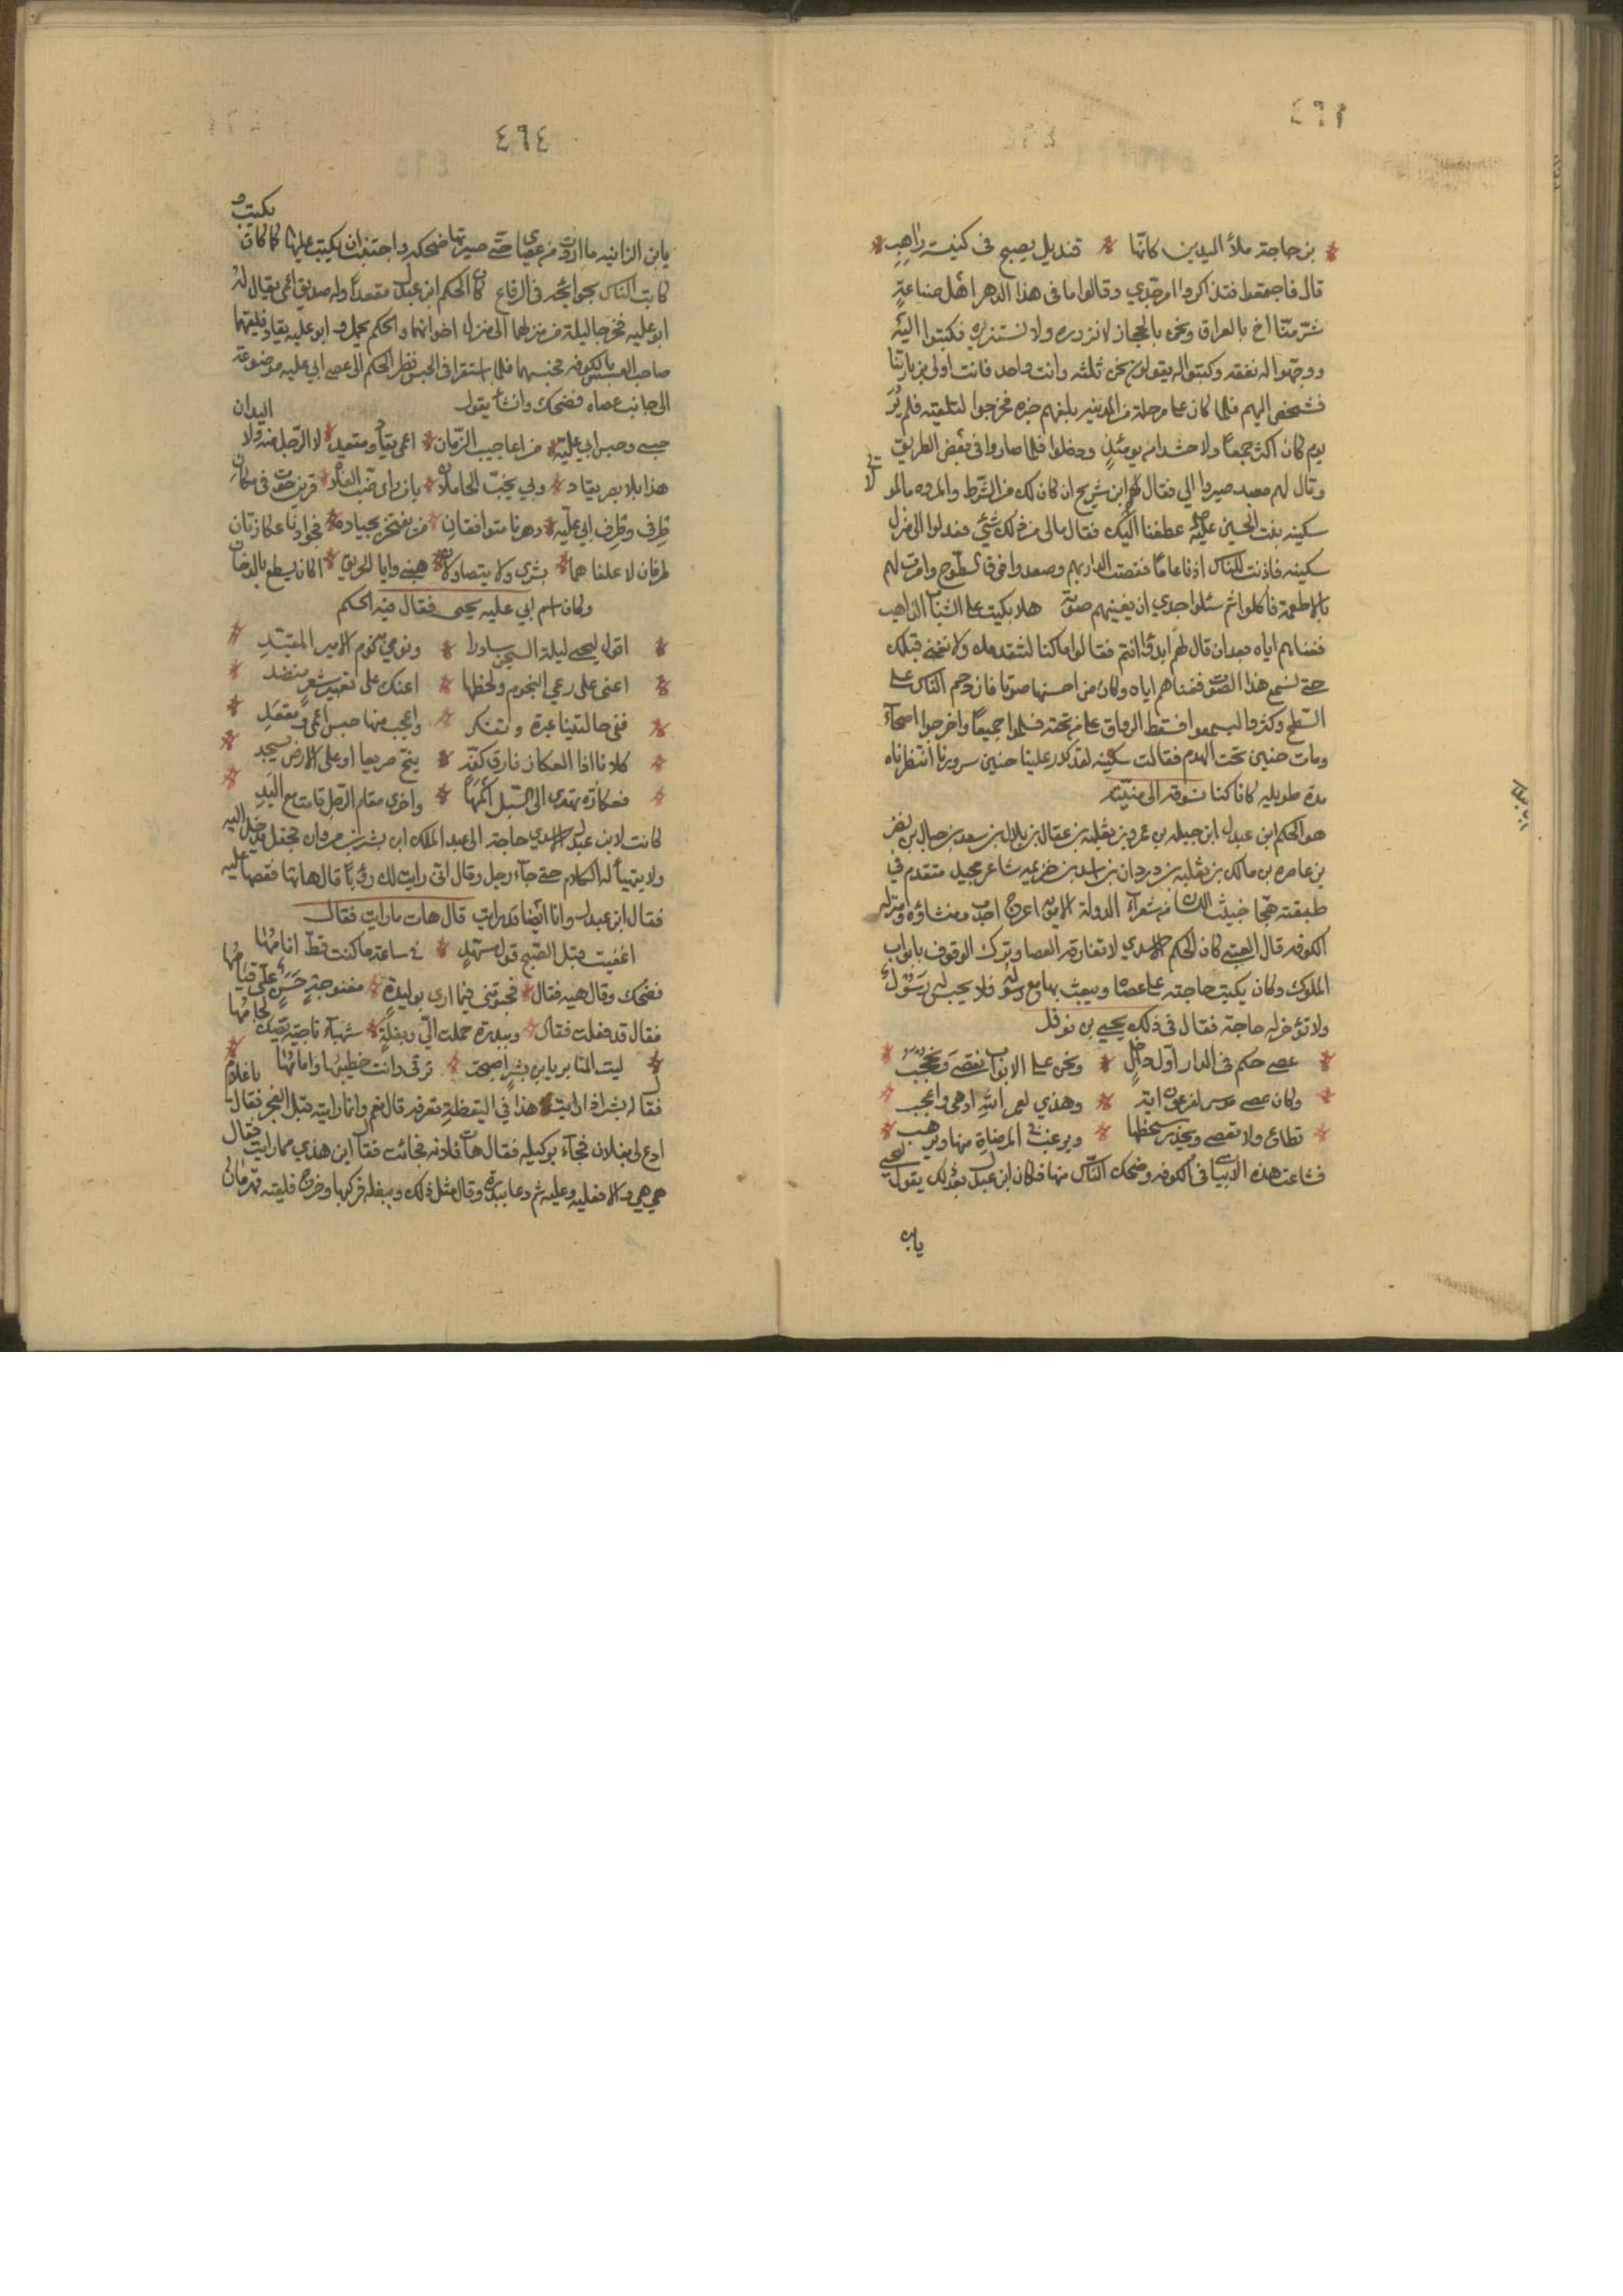 ٤٦٢
بن حاجة ملأ اليدين كانها * قنديل يصبح فى كنيسة راهب
قال فاجتمعوا فتذاكروا امر جدي وقالوا ما فى هذا الدهر اهل صناعة
شر منا اخ بالعراق ونحن بالحجاز لا نزوره ولا نستزيره فكتبوا اليه
ووجهوا له نفقه وكتبوا له يقولون نحن ثلثه وانت واحد فانت اولى بزيارتنا
فشخص اليهم فلما كان على مرحلة من المدينه بلغهم خبره فخرجوا لتلقيه فلم ير
يوم كان اكثر جمعا ولا حشدا من يومئذ ودخلوا فلما صاروا فى بعض الطريق
وقال لهم معبد صيروا الي فقال لهم ابن شريح ان كان لك من الشرط والمروه ما لمو
سكينه بنت الحسين عليه عطفنا اليك فقال مالى من ذلك شئ فعدلوا الى منزل
سكينه فاذنت للناس اذنا عاما فغصت الدار بهم وصعدوا فوق السطوح وامرت لهم
بالاطعمة فاكلوا ثم سئلوا جدي ان يغنيهم صوته هلا بكيت على الشباب الذاهب
فغناهم اياه بعد ان قال لهم ابدؤا انتم فقالوا ما كنا لنتقدمك ولا نغنى قبلك
حتى نسمع هذا الصوت فغناهم اياه وكان من احسنها صوتا فازدحم الناس على
السطح وكثروا ليسمعوا فسقط الرواق على من تحته فسلموا جميعا واخرجوا اصحاء
ومات حنين تحت الهدم فقالت سكينه لقد كدر علينا حنين سرورنا انتظرناه
مدة طويله كانا كنا نسوقه الى منيته
هو الحكم ابن عبدل ابن جبله بن عمرو بن ثعلبه بن عقال بن بلال بن سعد بن حبال بن نصر
بن عاضره بن مالك بن ثعلبه بن دودان بن اسد بن خزيمه شاعر مجيد متقدم في
طبقته هجا خبيث اللسان من شعراء الدولة الامويه اعرج احدب ومنشاؤه ومنزله
الكوفه قال العتبى كان الحكم الاسدي لا تفارقه العصا وترك الوقوف بابواب
الملوك وكان يكتب حاجته على عصاه ويبعث بها مع رسله فلا يحبس له رسول
ولا تؤخر له حاجة فقال فى ذلك يحيى بن نوفل
عصى حكم فى الدار اول داخل * ونحن على الابواب نقصى ونحجب
وكان عصى موسى لفرعون اية * وهذي لعمر الله ادهى واعجب
تطاع ولا تعصى ويحذر سخطها * ويرغب فى المرضاة منها ويرهب
فشاعت هذه الابيات فى الكوفه وضحك الناس منها فكان ابن عبدل بعد ذلك يقول ليحيى
يابن
٤٦٤
يابن الزانيه ما اردت من عصاي حتى صيرتها ضحكه واجتنب ان يكتب عليها كما كان يكتب و
كاتب الناس بحوائجه فى الرقاع كان الحكم ابن عبدل مقعدا وله صديق اعمى يقال له
ابو عليه فخرجا ليلة من منزلهما الى منزل اخوانهما والحكم يحمل وابو عليه يقاد فلقيهما
صاحب العسس بالكوفه فحبسهما فلما استقرا فى الحبس نظر الحكم الى عصى ابي عليه موضوعة
الى جانب عصاه فضحك وانشا يقول
حبسى وحبس ابي عليه * من اعاجيب الزمان * اعمى يقاد ومقعد * لا الرجل منه ولا اليدان
هذا بلا بصر يقاد * وبي يخب الحاملان * يا من راى ضب الفلاة * قرين حوت فى مكان
طرفى وطرف ابي عليه * دهرنا متوافقان * من يفتخر بجياده * فجيادنا عكازتان
طرفان لا علفا هما * يشرى ولا يتصاولان * هبنى وايا الحريق * اكان يسطع بالدخان
وكان اسم ابي عليه يحيى فقال فيه الحكم
اقول ليحيى ليلة السجن سادرا * ونومي كنوم الاسير المقيد
اعنى على رعي النجوم ولحظها * اعنك على تحبير شعر منضد
ففى حالتينا عبرة وتفكر * واعجب منها حبس اعمى ومقعد
كلانا اذا العكاز فارق كفه * ينخ صريعا او على الارض يسجد
فعكازه تهدى الى السبل اكمها * واخرى مقام الرجل قامت مع اليد
كانت لابن عبدل الاسدي حاجة الى عبد الملك ابن بشر بن مروان فجعل يدخل اليه
ولا يتهيأ له الكلام حتى جاء رجل وقال انى رايت لك رؤيا قال هاتها فقصها عليه
فقال ابن عبدل وانا ايضا قد رايت قال هات ما رايت فقال
اغفيت قبل الصبح قول مسهد * فى ساعة ما كنت قط انامها
فضحك وقال هيه فقال * فحبوتنى فيما ارى بوليدة * مغنوجة حسن علي قيامها
فقال قد فعلت فقال * وببدرة حملت الي وبغلة * شهباء ناجية يصك لجامها
ليت المنابر يابن بشر اصبحت * ترقى وانت خطيبها وامامها
فقال له بشر اذا رايت هذا في اليقظة تعرفه قال نعم وانما رايته قبل الفجر فقال يا غلام
ادع لى فلان فجاء بوكيله فقال هات فلانه فجائت فقال اين هذي مما رايت فقال
هي هي والا فعليه وعليه ثم دعا ببدرة وقال مثل ذلك وببغله فركبها وخرج فلقيته قهرمان